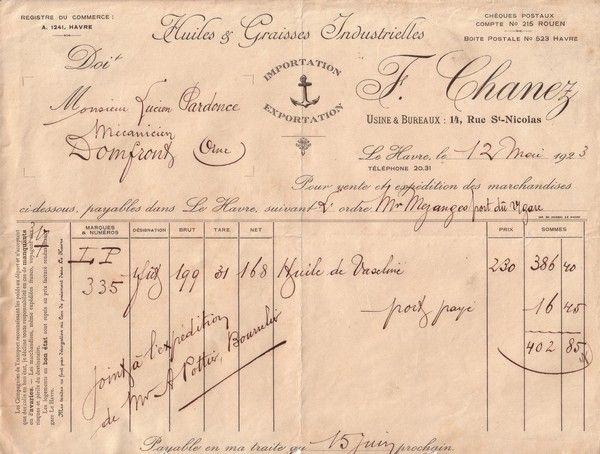 REGISTRE DU COMMERCE :
A. 1241, HAVRE
Huiles & Graisses Industrielles
CHÈQUES POSTAUX
COMPTE No 215 ROUEN
BOITE POSTALE No 523 HAVRE
Doit
IMPORTATION
EXPORTATION
F. Chanez
USINE & BUREAUX : 14, Rue St-Nicolas
Monsieur Lucien Pardence
Mécanicien
Domfront Orne
Le Havre, le 12 Mai 1923
TÉLÉPHONE 20.31
Pour vente et expédition des marchandises
ci-dessous, payables dans Le Havre, suivant l' ordre Mr Mezanges port du
MARQUES & NUMÉROS DÉSIGNATION BRUT TARE NET PRIX SOMMES
LP
335 fût 199 31 168 Huile de Vaseline 230 386 40
port payé 16 45
402 85
joint à l'expédition
de Mr A Pottier, Bourrelier
Payable en ma traite au 15 juin prochain.